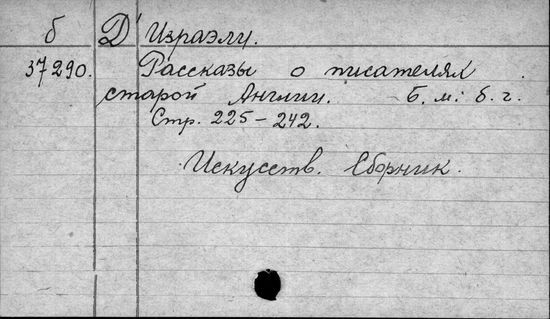 б Д'Израэли.
37290. Рассказы о писателях
старой Англии. Б. м. б. г.
Стр. 225-242.
Искусств. Сборник.